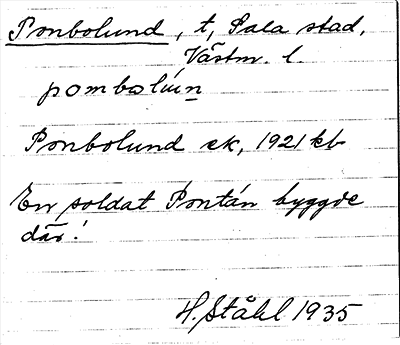 Ponbolund, t, Sala stad,
Västm. l.
pombolun
Ponbolund ek, 1921 kb
En soldat Pontán byggde
där!
H. Ståhl 1935